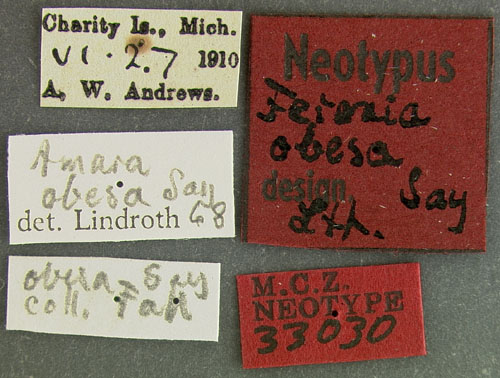 Charity Is., Mich.
VI. 27 1910
A. W. Andrews.
Neotypus
Feronia
obesa
Say
design.
Lth.
Amara
obesa Say
det. Lindroth 68
obesa-Say
coll. Fall
M.C.Z.
NEOTYPE
33030